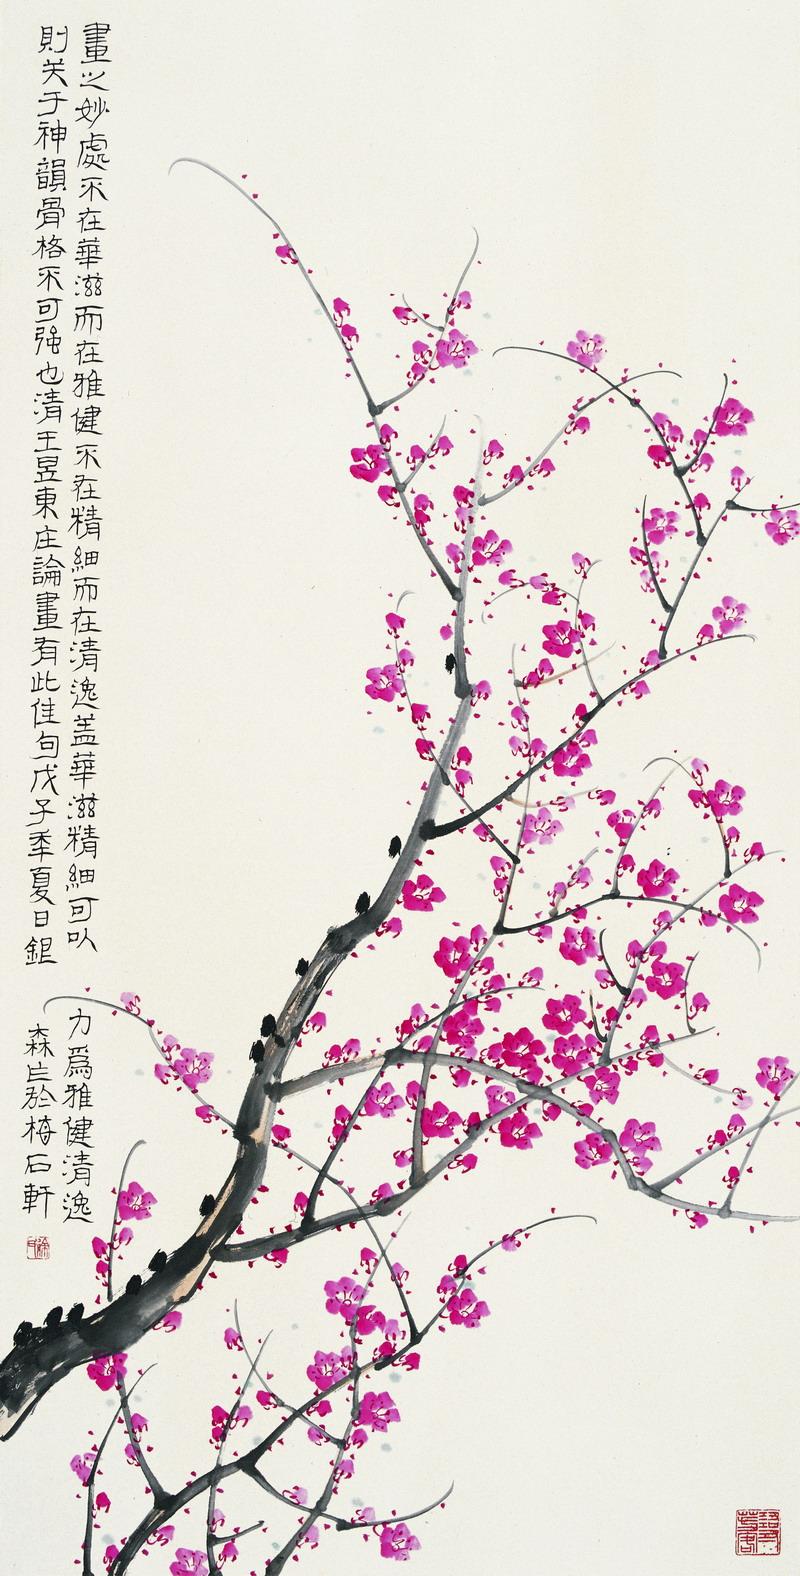 畫之妙處不在華滋而在雅健不在精細而在清逸盖華滋精細可以力爲雅健清逸
則关于神韻骨格不可強也清王昱東庄論畫有此佳句戊子季夏日錕森

於梅石軒